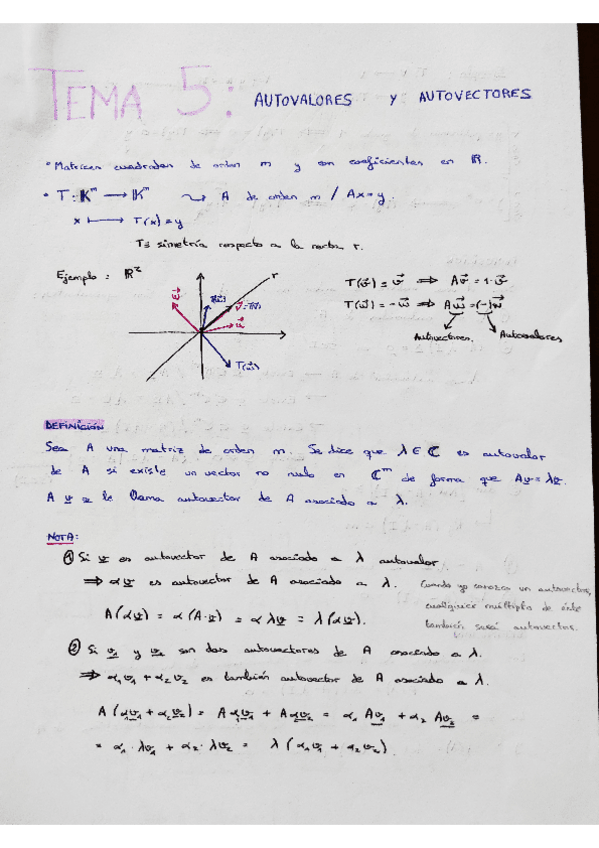 TEMA 5: AUTOVALORES Y AUTOVECTORES
• Matrices cuadradas de orden m y con coeficientes en ℝ.
• T: 𝕂ᵐ → 𝕂ᵐ ⤳ A de orden m / Ax = y.
x ↦ T(x) = y
T ≡ simetría respecto a la recta r.
Ejemplo: ℝ²
r
T(v⃗) = v⃗ ⟹ Av⃗ = 1·v⃗
T(w⃗) = -w⃗ ⟹ Aw⃗ = (-1)w⃗
Autovectores Autovalores
T(w⃗)
DEFINICIÓN
Sea A una matriz de orden m. Se dice que λ ∈ ℂ es autovalor
de A si existe un vector no nulo en ℂᵐ de forma que Av = λv.
A v se le llama autovector de A asociado a λ.
NOTA:
① Si v es autovector de A asociado a λ autovalor
⟹ αv es autovector de A asociado a λ. Cuando yo conozca un autovector,
cualquier múltiplo de éste
también será autovector.
A(αv) = α(A·v) = αλv = λ(αv).
② Si v₁ y v₂ son dos autovectores de A asociado a λ.
⟹ α₁v₁ + α₂v₂ es también autovector de A asociado a λ.
A(α₁v₁ + α₂v₂) = Aα₁v₁ + Aα₂v₂ = α₁Av₁ + α₂Av₂ =
= α₁·λv₁ + α₂·λv₂ = λ(α₁v₁ + α₂v₂)